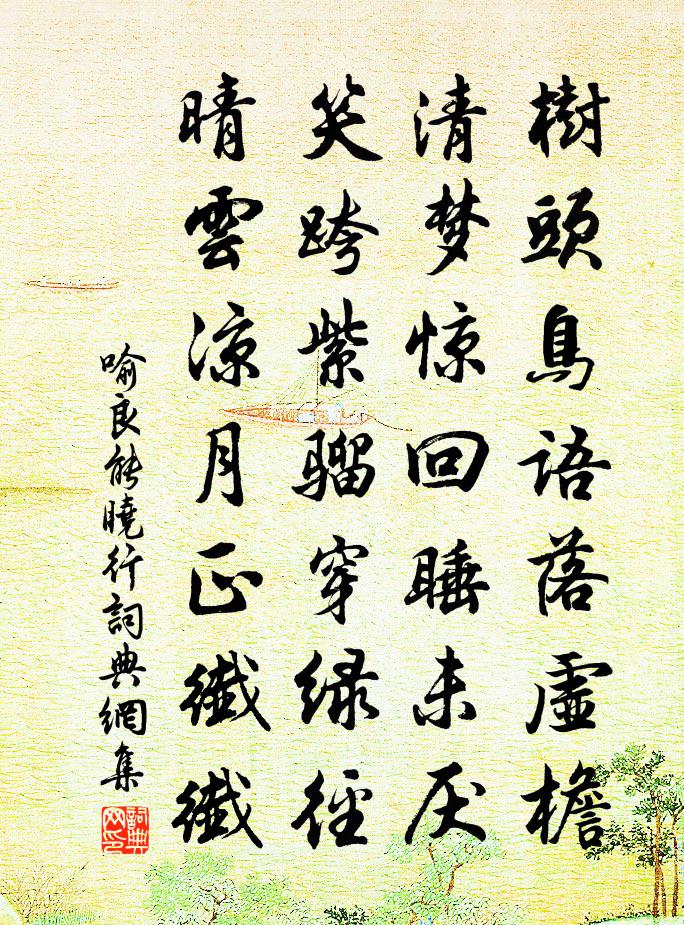 樹頭鳥語落虛檐
清梦惊回睡未厌
笑跨紫騮穿绿徑
晴雲凉月正纖纖
喻良能曉行詞典網集
詞典网印